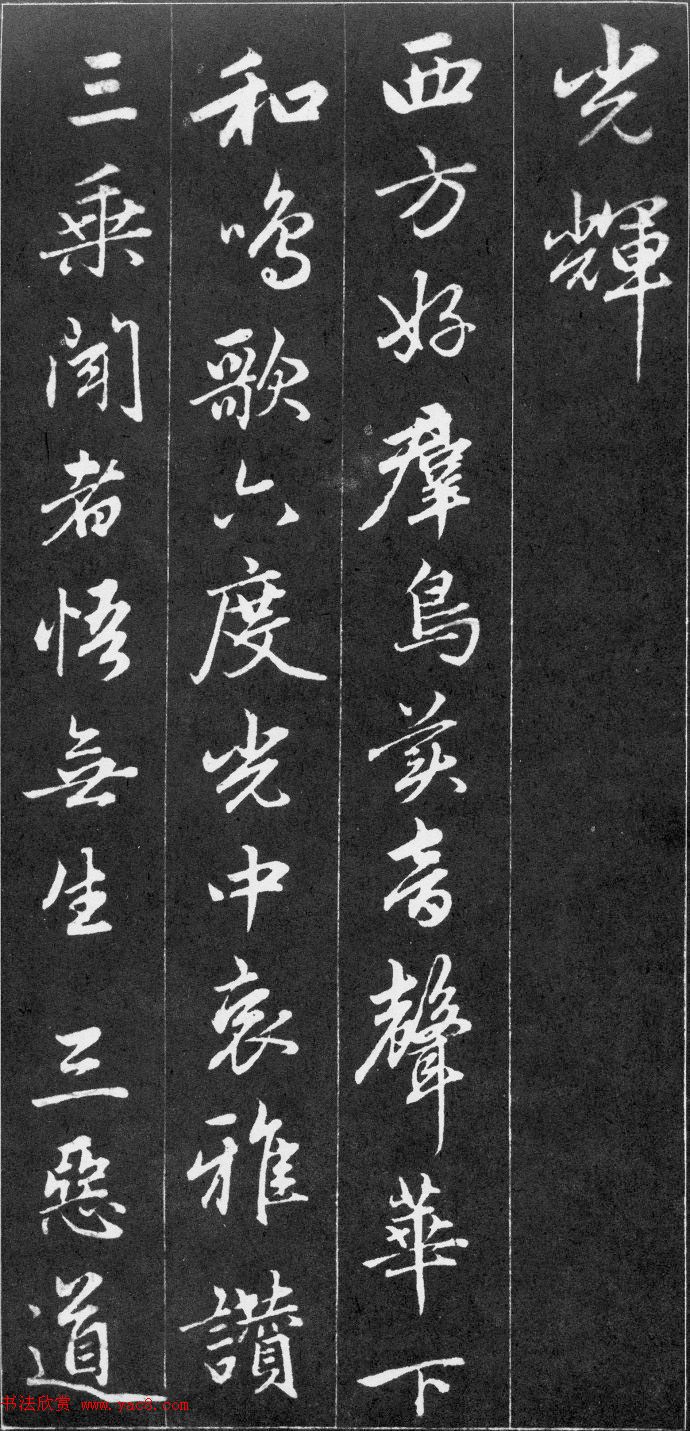 光輝
西方好群鳥美音聲華下
和鳴歌六度光中哀雅讃
三乗聞者悟無生 三惡道
书法欣赏 www.yac8.com